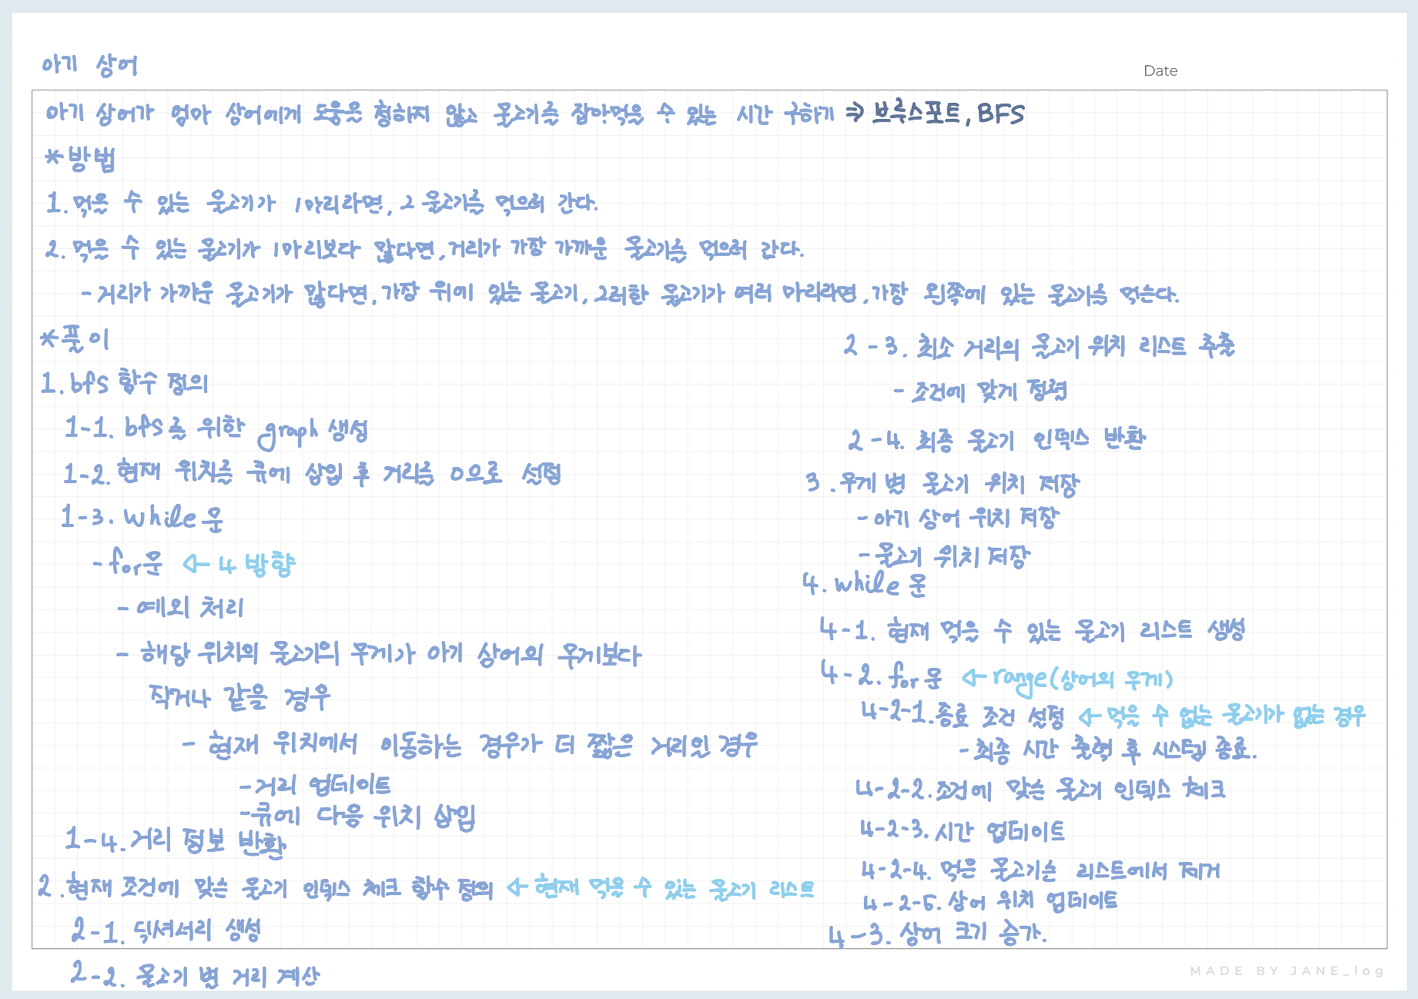 아기 상어
Date
아기 상어가 엄마 상어에게 도움을 청하지 않고 물고기를 잡아먹을 수 있는 시간 구하기 ⇒ 브루스포트, BFS
*방법
1. 먹을 수 있는 물고기가 1마리라면, 그 물고기를 먹으러 간다.
2. 먹을 수 있는 물고기가 1마리보다 많다면, 거리가 가장 가까운 물고기를 먹으러 간다.
- 거리가 가까운 물고기가 많다면, 가장 위에 있는 물고기, 그러한 물고기가 여러 마리라면, 가장 왼쪽에 있는 물고기를 먹는다.
*풀이
1. bfs 함수 정의
1-1. bfs를 위한 graph 생성
1-2. 현재 위치를 큐에 삽입 후 거리를 0으로 설정
1-3. while문
- for문 ← 4 방향
- 예외 처리
- 해당 위치의 물고기의 무게가 아기 상어의 무게보다
작거나 같을 경우
- 현재 위치에서 이동하는 경우가 더 짧은 거리인 경우
- 거리 업데이트
- 큐에 다음 위치 삽입
1-4. 거리 정보 반환
2. 현재 조건에 맞는 물고기 인덱스 체크 함수 정의 ← 현재 먹을 수 있는 물고기 리스트
2-1. 딕셔너리 생성
2-2. 물고기 별 거리 계산
2-3. 최소 거리의 물고기 위치 리스트 추출
- 조건에 맞게 정렬
2-4. 최종 물고기 인덱스 반환
3. 무게 별 물고기 위치 저장
- 아기 상어 위치 저장
- 물고기 위치 저장
4. while 문
4-1. 현재 먹을 수 있는 물고기 리스트 생성
4-2. for문 ← range(상어의 무게)
4-2-1. 종료 조건 설정 ← 먹을 수 없는 물고기가 없는 경우
- 최종 시간 출력 후 시스템 종료.
4-2-2. 조건에 맞는 물고기 인덱스 체크
4-2-3. 시간 업데이트
4-2-4. 먹은 물고기는 리스트에서 제거
4-2-5. 상어 위치 업데이트
4-3. 상어 크기 증가.
MADE BY JANE_log